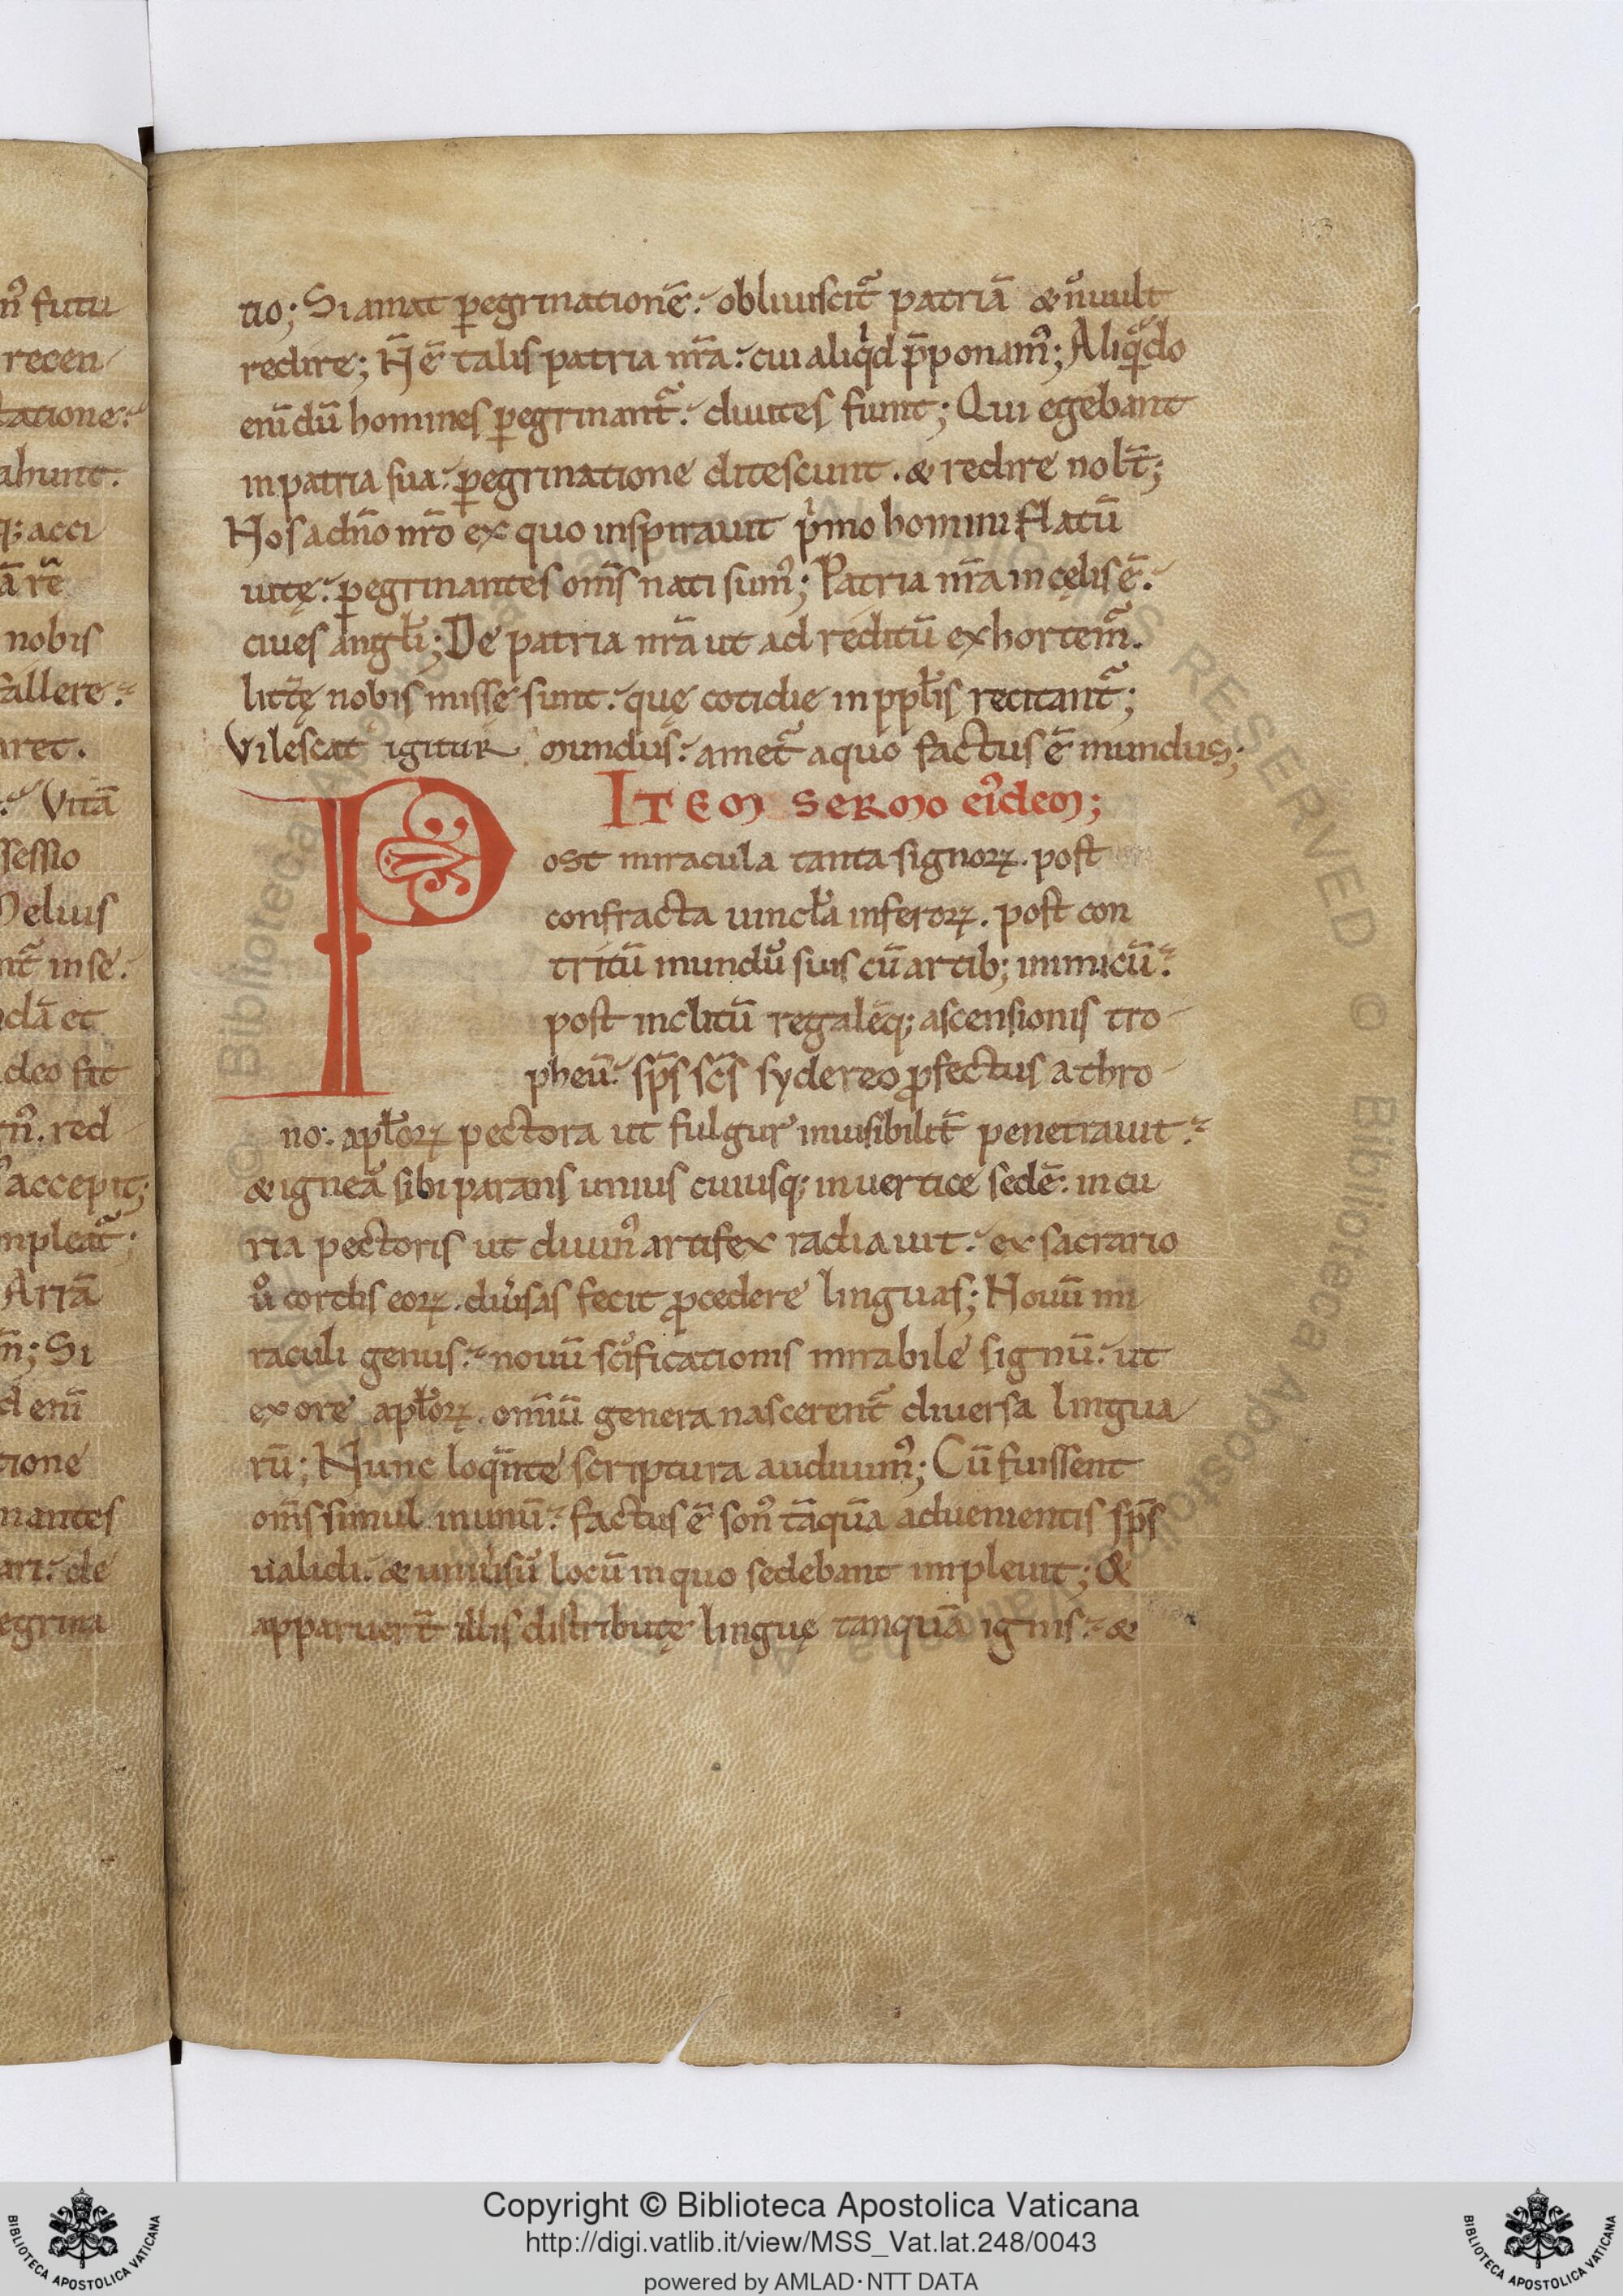 n᷒ futu
recen
tatione.
ahunt.
q; acci
ā rē
nobis
fallere.
aret.
Vitā
ssessio
eluis
nt᷑ inse.
clā et
deo fit
n᷒. red
accepit;
npleat᷑
Arrā
n̄; Si
d eni̅
tione
nantes
ari. de
egrina
tio; Si amat p̲egrinationē. obliuiscit᷑ patriā & n̄ uult
redire; N̄ ē talis patria nr̄a. cui aliqͥd p̄ponam᷒; Aliqᷓdo
eni̅ dū homines p̲egrinant᷑. diuites fiunt; Qui egebant
in patria sua. p̲egrinatione ditescunt. & redire nolt̄;
Nos a dn̄o nr̄o ex quo inspirauit pͥmo homini flatū
uitę. p̲egrinantes om̄s nati sum᷒; Patria nr̄a in cęlis ē.
ciues angl̄i; De patria nr̄a ut ad reditū exhortem᷑.
litt̄ę nobis missę sunt. quę cotidie in ppl̄is recitant᷑;
Vilescat igitur mundus. amet᷑ a quo factus ē mundus;
Item sermo ei᷒dem;
Post miracula tanta signoꝝ. post
confracta uincl̄a inferoꝝ. post con
tritū mundū suis cū artib; inimicū.
post inclitū regalēq; ascensionis tro
pheū. sp̄s sc̄s sydereo ꝓfectus a thro
no. apl̄oꝝ pectora ut fulgur inuisibilit̄ penetrauit.
& igneā sibi parans unius cuiusq; in uertice sedē. in cu
ria pectoris ut diuin᷒ artifex radiauit. ex sacrario
uͦ cordis eoꝝ. diu̾sas fecit ꝓcedere linguas; Nouū mi
raculi genus. nouū sc̄ificationis mirabile signū. ut
ex ore apl̄oꝝ. omi̅ū genera nascerent᷑ diuersa lingua
rū; Nunc loqn̄te scriptura audiuim᷒; Cū fuissent
om̄s simul in unū. factus ē son᷒ tāquā aduenientis sp̄s
ualidi. & uniu̾sū locū in quo sedebant impleuit; &
apparuer̄t illis distributę linguę tanquā ignis. &
Copyright © Biblioteca Apostolica Vaticana
http://digi.vatlib.it/view/MSS_Vat.lat.248/0043
powered by AMLAD·NTT DATA
BIBLIOTECA APOSTOLICA VATICANA
BIBLIOTECA APOSTOLICA VATICANA